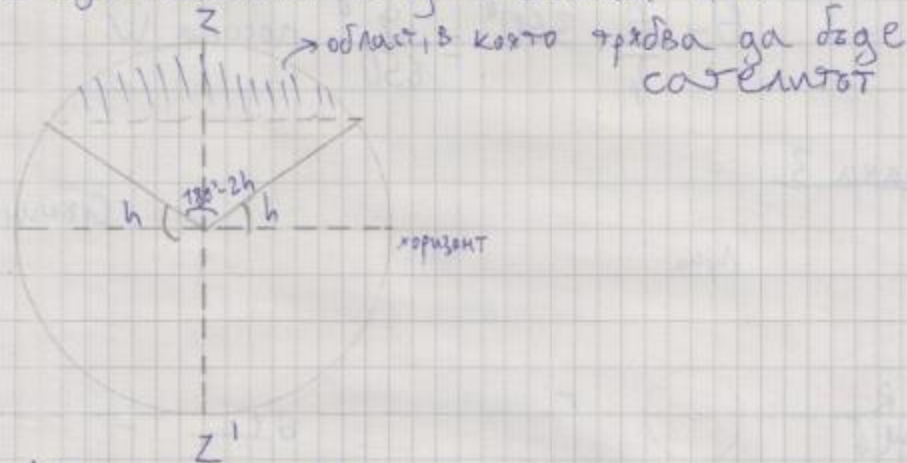 Z
област, в която трябва да бъде
сателитът
180°-2h
h
h
хоризонт
Z'